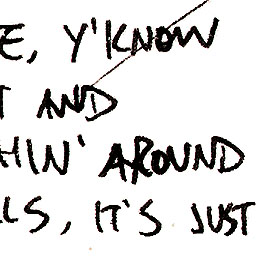 E, Y'KNOW
T AND
HIN' AROUND
LS, IT'S JUST